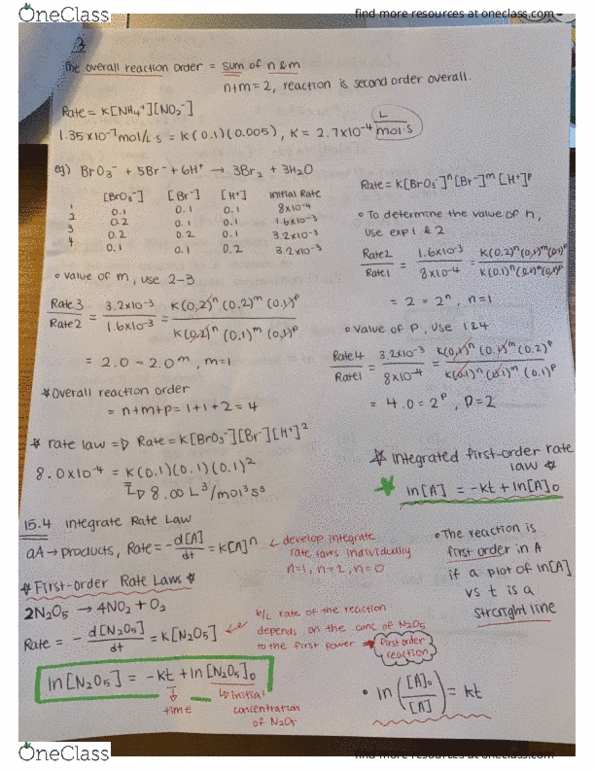 OneClass
find more resources at oneclass.com
3
The overall reaction order = sum of n & m
n+m=2, reaction is second order overall.
Rate = K[NH₄⁺][NO₂⁻]
1.35x10⁻⁷ mol/L s = K(0.1)(0.005), K = 2.7x10⁻⁴ L/mol·s
eg) BrO₃⁻ + 5Br⁻ + 6H⁺ → 3Br₂ + 3H₂O
[BrO₃⁻] [Br⁻] [H⁺] initial Rate
1 0.1 0.1 0.1 8x10⁻⁴
2 0.2 0.1 0.1 1.6x10⁻³
3 0.2 0.2 0.1 3.2x10⁻³
4 0.1 0.1 0.2 3.2x10⁻³
Rate = K[BrO₃⁻]ⁿ[Br⁻]ᵐ[H⁺]ᵖ
° To determine the value of n,
use exp 1 & 2
Rate2/Rate1 = 1.6x10⁻³/8x10⁻⁴ = K(0.2)ⁿ(0.1)ᵐ(0.1)ᵖ/K(0.1)ⁿ(0.1)ᵐ(0.1)ᵖ
= 2 = 2ⁿ, n=1
° value of m, use 2-3
Rate3/Rate2 = 3.2x10⁻³/1.6x10⁻³ = K(0.2)ⁿ(0.2)ᵐ(0.1)ᵖ/K(0.2)ⁿ(0.1)ᵐ(0.1)ᵖ
= 2.0 = 2.0ᵐ, m=1
° value of P, use 1&4
Rate4/Rate1 = 3.2x10⁻³/8x10⁻⁴ = K(0.1)ⁿ(0.1)ᵐ(0.2)ᵖ/K(0.1)ⁿ(0.1)ᵐ(0.1)ᵖ
= 4.0 = 2ᵖ, P=2
*Overall reaction order
= n+m+p = 1+1+2 = 4
* rate law => Rate = K[BrO₃⁻][Br⁻][H⁺]²
8.0x10⁻⁴ = K(0.1)(0.1)(0.1)²
8.00 L³/mol³s
* Integrated first-order rate
law *
ln[A] = -kt + ln[A]₀
15.4 Integrate Rate Law
aA → products, Rate = -d[A]/dt = K[A]ⁿ
develop integrate
rate laws individually
n=1, n=2, n=0
° The reaction is
first order in A
if a plot of ln[A]
vs t is a
straight line
* First-Order Rate Laws *
2N₂O₅ → 4NO₂ + O₂
Rate = -d[N₂O₅]/dt = K[N₂O₅]
b/c rate of the reaction
depends on the conc of N₂O₅
to the first power → first order
reaction
ln[N₂O₅] = -kt + ln[N₂O₅]₀
time
initial
concentration
of N₂O₅
• ln([A]₀/[A]) = kt
OneClass
find more resources at oneclass.com